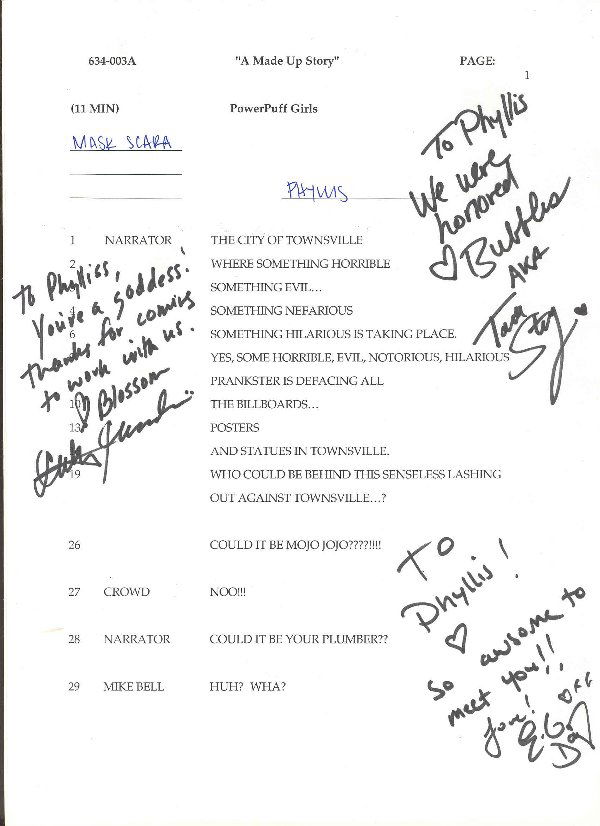 634-003A "A Made Up Story" PAGE:
1
(11 MIN) PowerPuff Girls
MASK SCARA
PHYLLIS
To Phyllis
We were
honored
♡ Bubbles
AKA
Tara
1 NARRATOR THE CITY OF TOWNSVILLE
2 WHERE SOMETHING HORRIBLE
SOMETHING EVIL…
SOMETHING NEFARIOUS
6 SOMETHING HILARIOUS IS TAKING PLACE.
YES, SOME HORRIBLE, EVIL, NOTORIOUS, HILARIOUS
PRANKSTER IS DEFACING ALL
10 THE BILLBOARDS…
13 POSTERS
AND STATUES IN TOWNSVILLE.
19 WHO COULD BE BEHIND THIS SENSELESS LASHING
OUT AGAINST TOWNSVILLE…?
To Phylliss,
You're a goddess!
thanks for coming
to work with us.
♡ Blossom
26 COULD IT BE MOJO JOJO????!!!!
27 CROWD NOO!!!
28 NARRATOR COULD IT BE YOUR PLUMBER??
29 MIKE BELL HUH? WHA?
TO
Phyllis!
♡
So awsome to
meet you!!